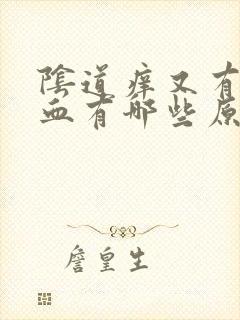 陰道痒又有
血有哪些原
詹皇生